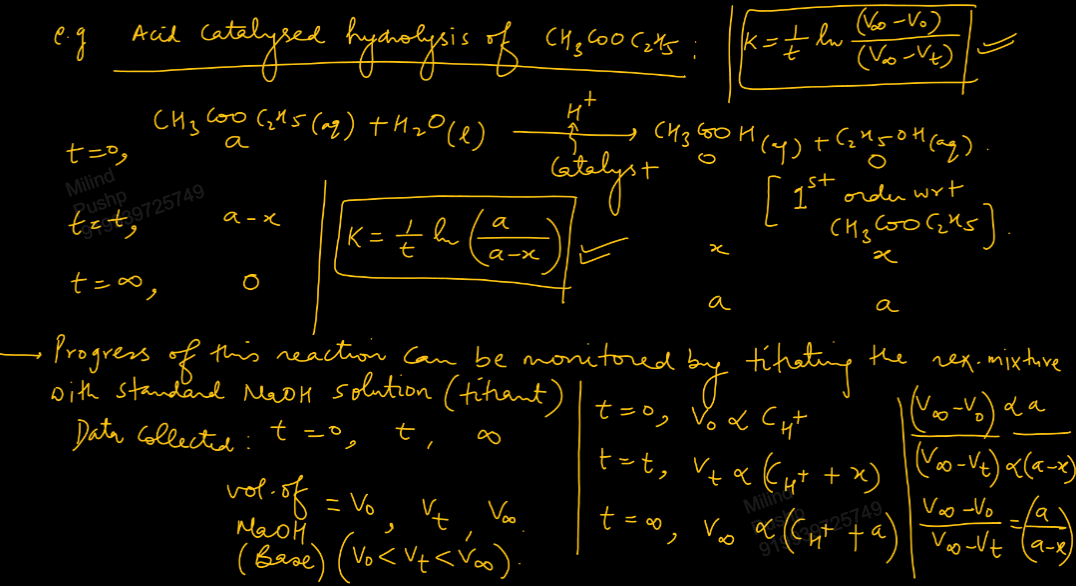 e.g Acid catalysed hydrolysis of CH₃COOC₂H₅ :
K = 1/t ln (V∞ - V₀)/(V∞ - Vt) ✓
CH₃COOC₂H₅(aq) + H₂O(l) —H⁺→ CH₃COOH(aq) + C₂H₅OH(aq).
Catalyst
t=0, a 0 0
[1st order wrt
CH₃COOC₂H₅].
t=t, a-x x x
K = 1/t ln (a/(a-x)) ✓
t=∞, 0 a a
Milind
Pushp
→ Progress of this reaction can be monitored by titrating the rex. mixture
with standard NaOH solution (titrant)
Data collected : t=0, t, ∞
vol. of
NaOH
(Base)
= V₀, Vt, V∞
(V₀ < Vt < V∞).
t=0, V₀ ∝ C_H⁺
t=t, Vt ∝ (C_H⁺ + x)
t=∞, V∞ ∝ (C_H⁺ + a)
(V∞-V₀) ∝ a
(V∞-Vt) ∝ (a-x)
(V∞-V₀)/(V∞-Vt) = (a/(a-x))
Milind
Pushp